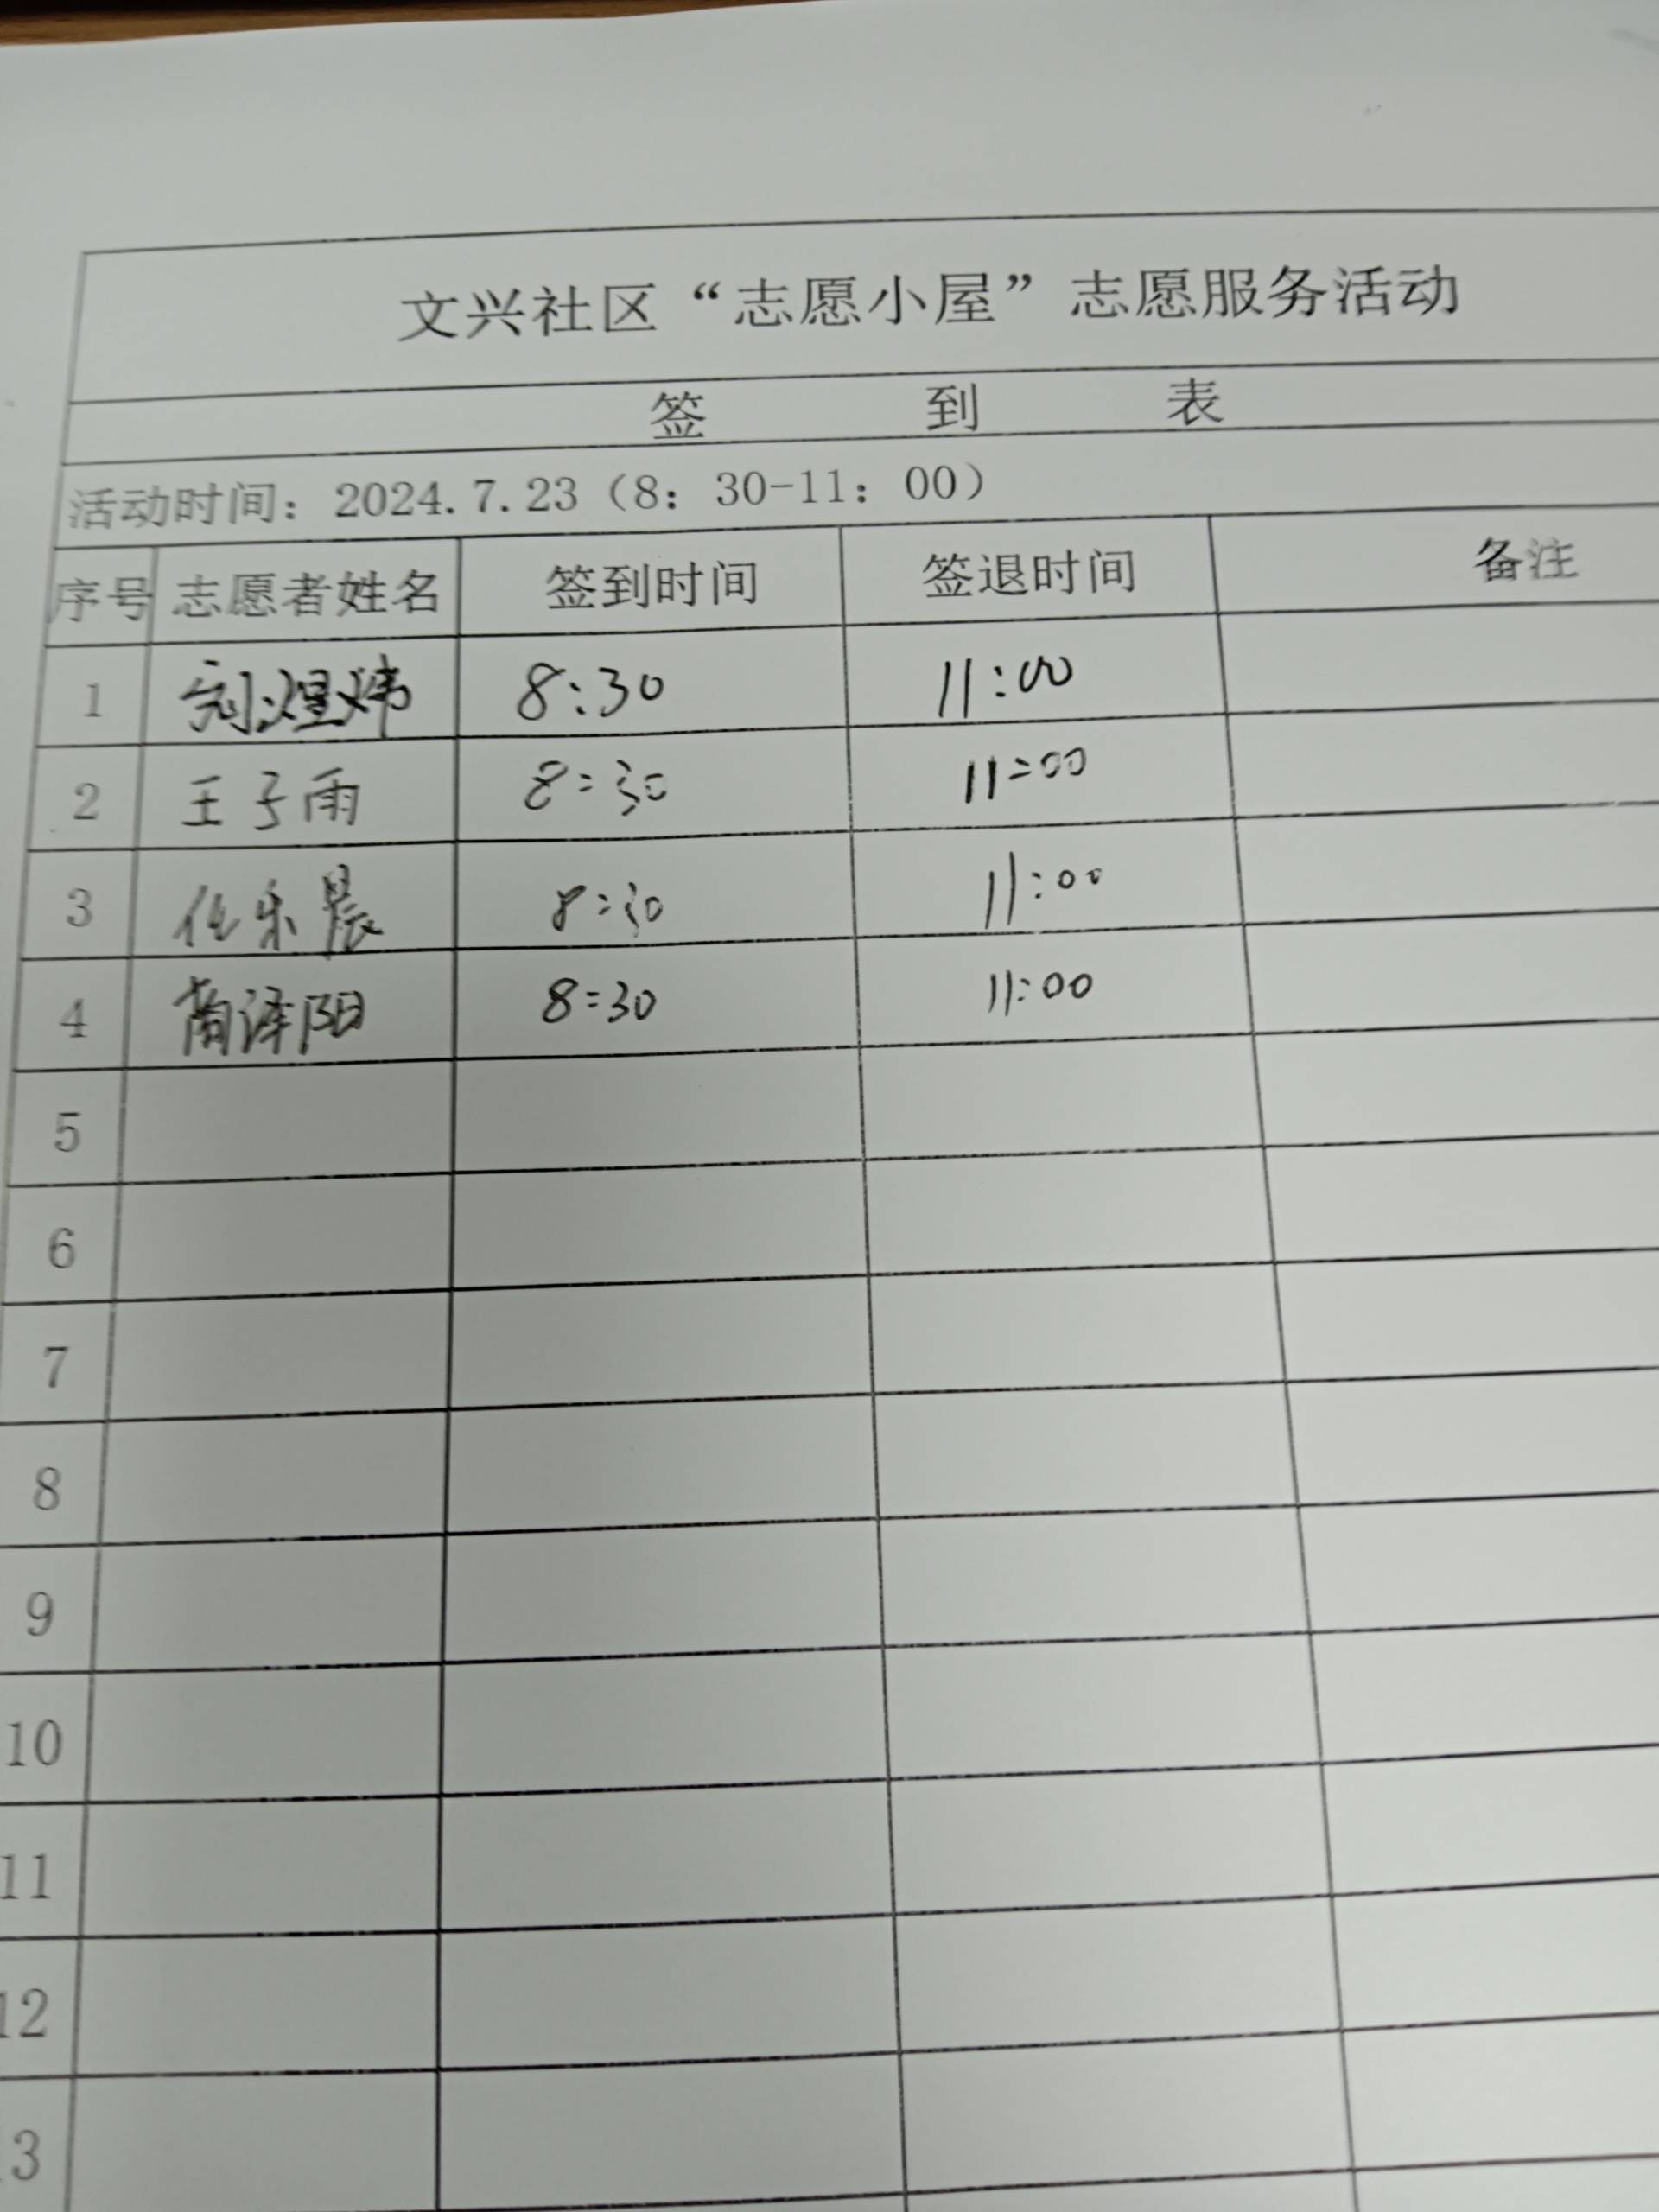 文兴社区“志愿小屋”志愿服务活动
签 到 表
活动时间：2024.7.23（8：30-11：00）
序号 志愿者姓名 签到时间 签退时间 备注
1 8:30 11:00
2 王子雨 8:30 11:00
3 乐晨 8:30 11:00
4 泽阳 8:30 11:00
5
6
7
8
9
10
11
12
13